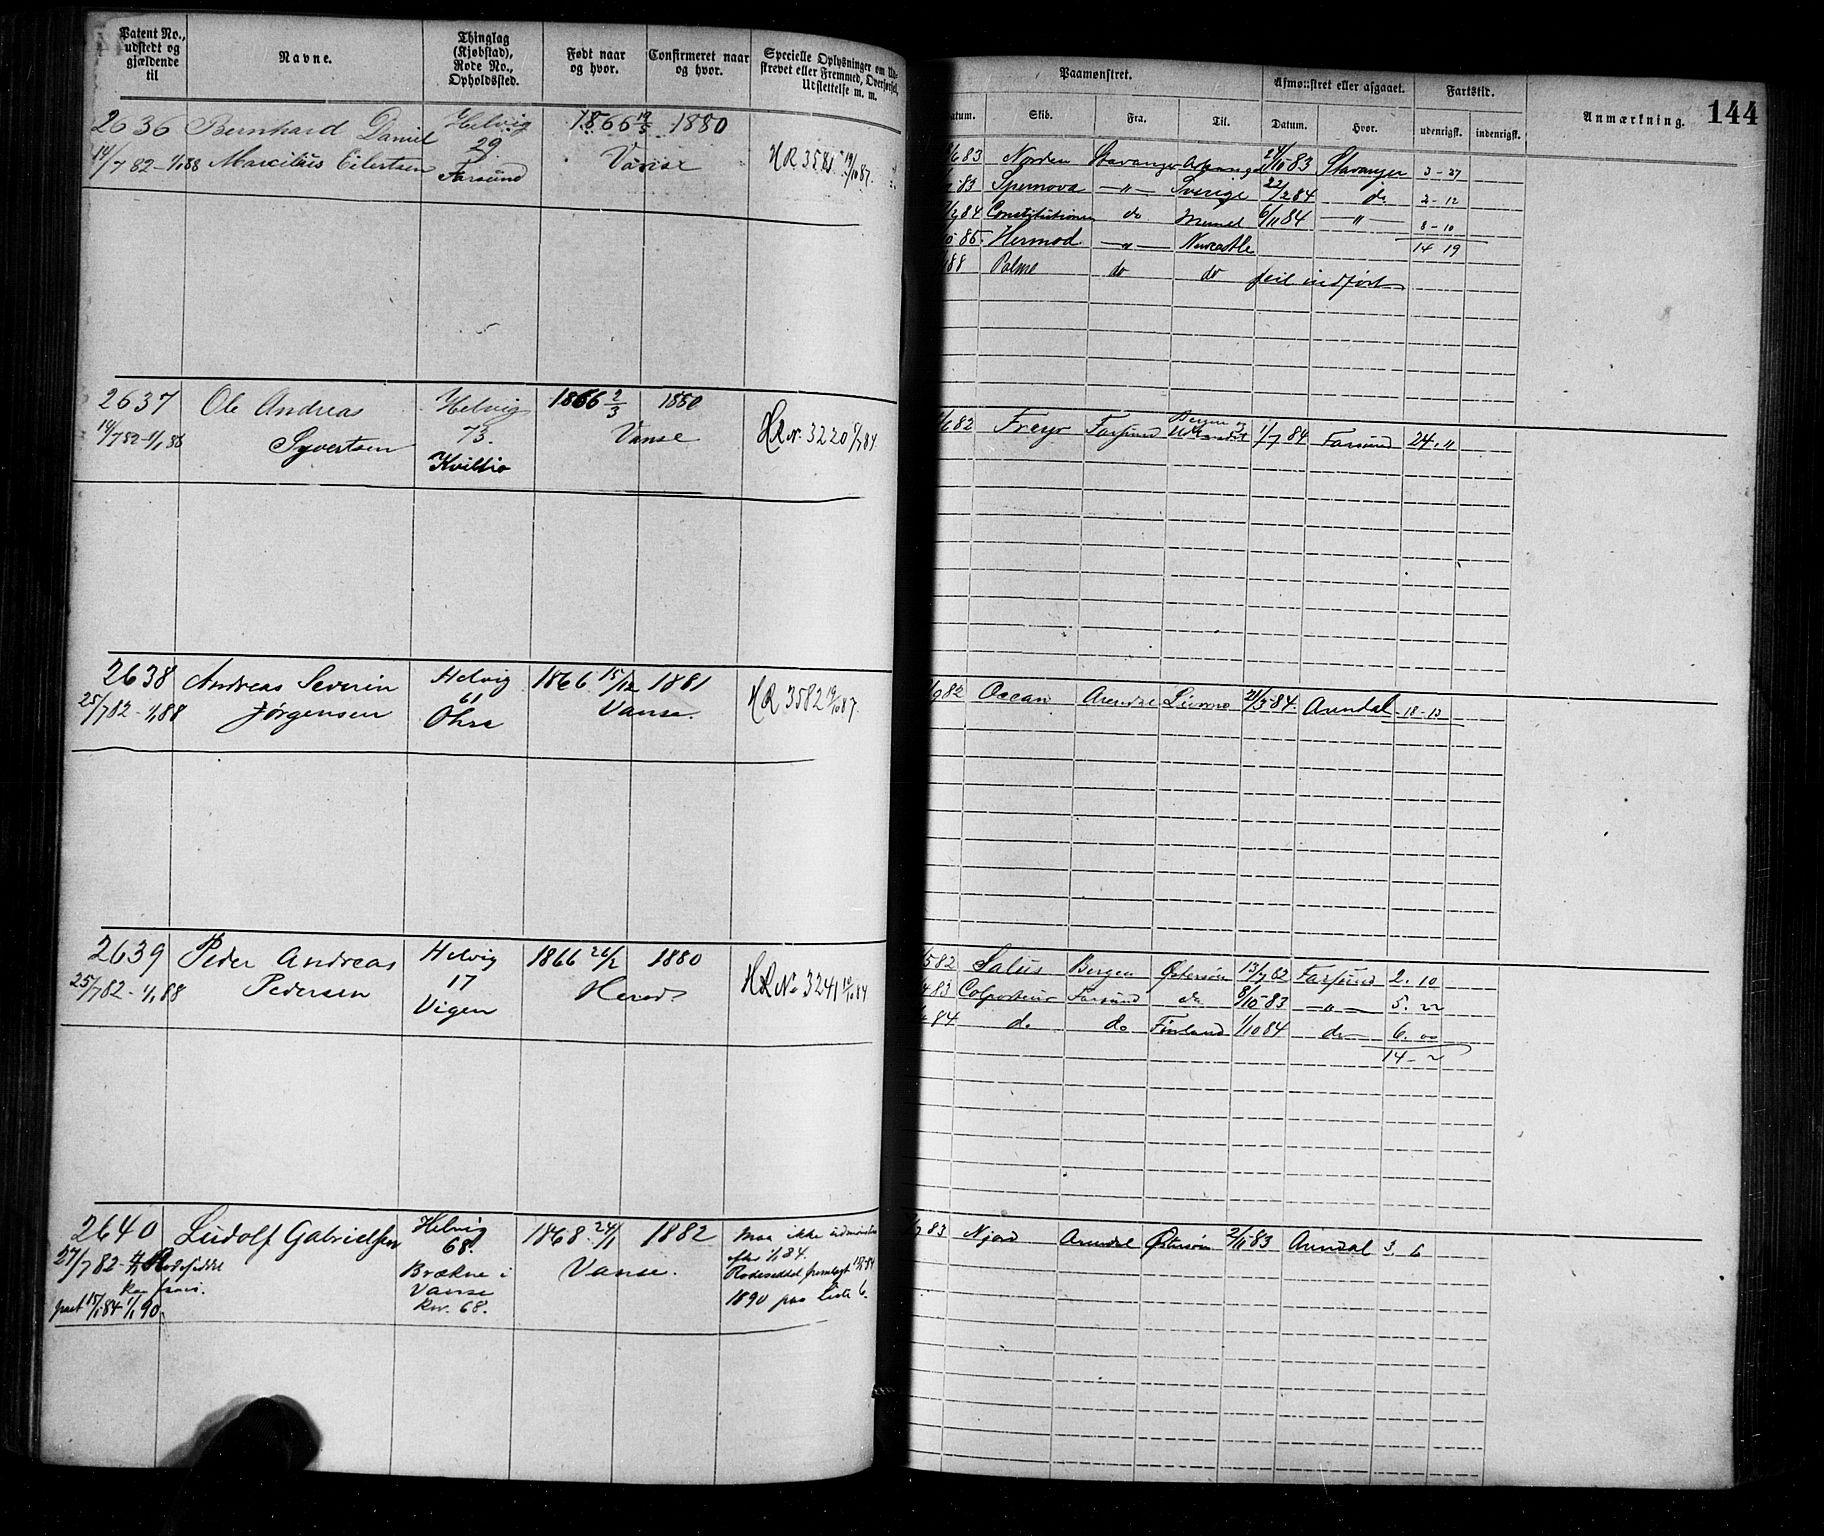 Patent No., udstedt og gjældende til
Navne.
Thinglag (Kjøbstad), Rode No., Opholdssted.
Født naar og hvor.
Confirmeret naar og hvor.
Specielle Oplysninger om Ud-
strevet eller Fremmed, Overførsel,
Udslettelse m. m.
2636 Bernhard Daniel Helvig 1866 19/5 1880
14/7 82-1/1 88 Marcilius Eilertsen 29 Vanse HR 3581 19/10 87.
Farsund
2637 Ole Andreas Helvig 1866 2/3 1880
14/7 82-1/1 88 Syvertsen 73. Vanse HR No. 3220 9/7 84
Kviltio
2638 Andreas Severin Helvig 1866 15/12 1881
25/7 82-1/1 88 Jørgensen 61 Vanse. HR 3582 19/10 87
Ohre
2639 Peder Andreas Helvig 1866 26/2 1880
25/7 82-1/1 88 Pedersen 17 Herod HR No 3241 10/10 84
Vigen
2640 Ludolf Gabrielsen Helvig 1868 24/1 1882 Maa ikke udmønstres
27/7 82 68. Vanse. efter 1/1 84.
Brække i Rodeseddel fremlagt
Vanse 1890 paa Liste 6.
15/1 84 1/1 90. Rno. 68.
Paamønstret.
Afmønstret eller afgaaet.
Fartstid.
Anmærkning.
144
Datum. Skib. Fra. Til. Datum. Hvor. udenrigsk. indenrigsk.
83 Norden Stavanger 24/10 83 Stavanger 3-27
83 Spernova -"- Sverige 22/2 84 do 2-12
84 Constitutionen do Memel 6/11 84 -"- 8-10
85. Hermod -"- Newcastle 14 19
88 Palme do do feil indført
82 Freyr Farsund Bergen og 1/7 84 Farsund 24. 11
82 Ocean Arendal Livorno 21/3 84. Arendal 18-13
82 Salus Bergen Østersøn 13/7 82 Farsund 2. 10
83 Colporteur Farsund do 8/10 83 -"- 5. 22
84 do do Finland 1/10 84 do 6. 00
14-2
83 Njord Arendal Østersøn 2/11 83 Arendal 3. 6